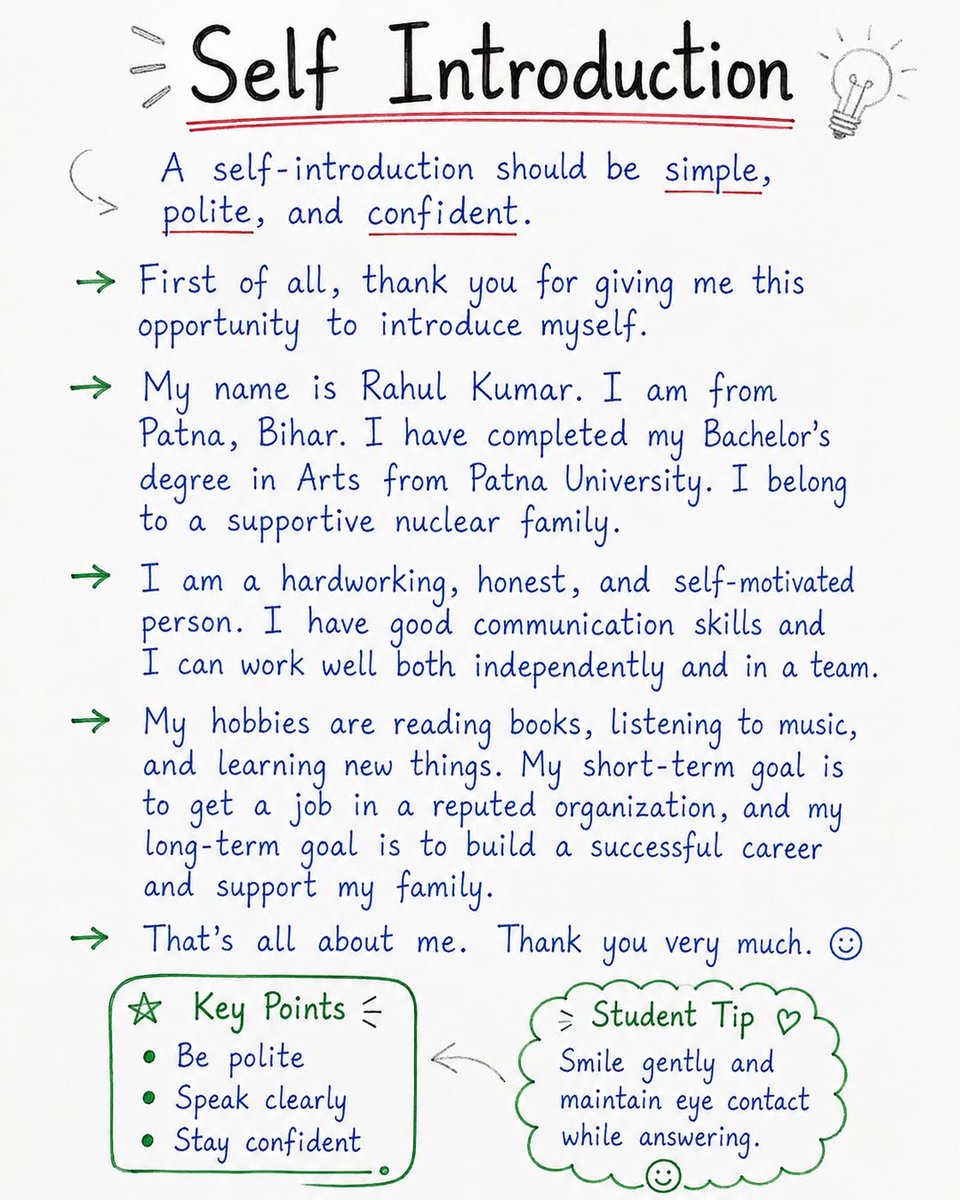 Self Introduction
A self-introduction should be simple,
polite, and confident.
→ First of all, thank you for giving me this
opportunity to introduce myself.
→ My name is Rahul Kumar. I am from
Patna, Bihar. I have completed my Bachelor's
degree in Arts from Patna University. I belong
to a supportive nuclear family.
→ I am a hardworking, honest, and self-motivated
person. I have good communication skills and
I can work well both independently and in a team.
→ My hobbies are reading books, listening to music,
and learning new things. My short-term goal is
to get a job in a reputed organization, and my
long-term goal is to build a successful career
and support my family.
→ That's all about me. Thank you very much. ☺
☆ Key Points
• Be polite
• Speak clearly
• Stay confident
Student Tip ♡
Smile gently and
maintain eye contact
while answering.